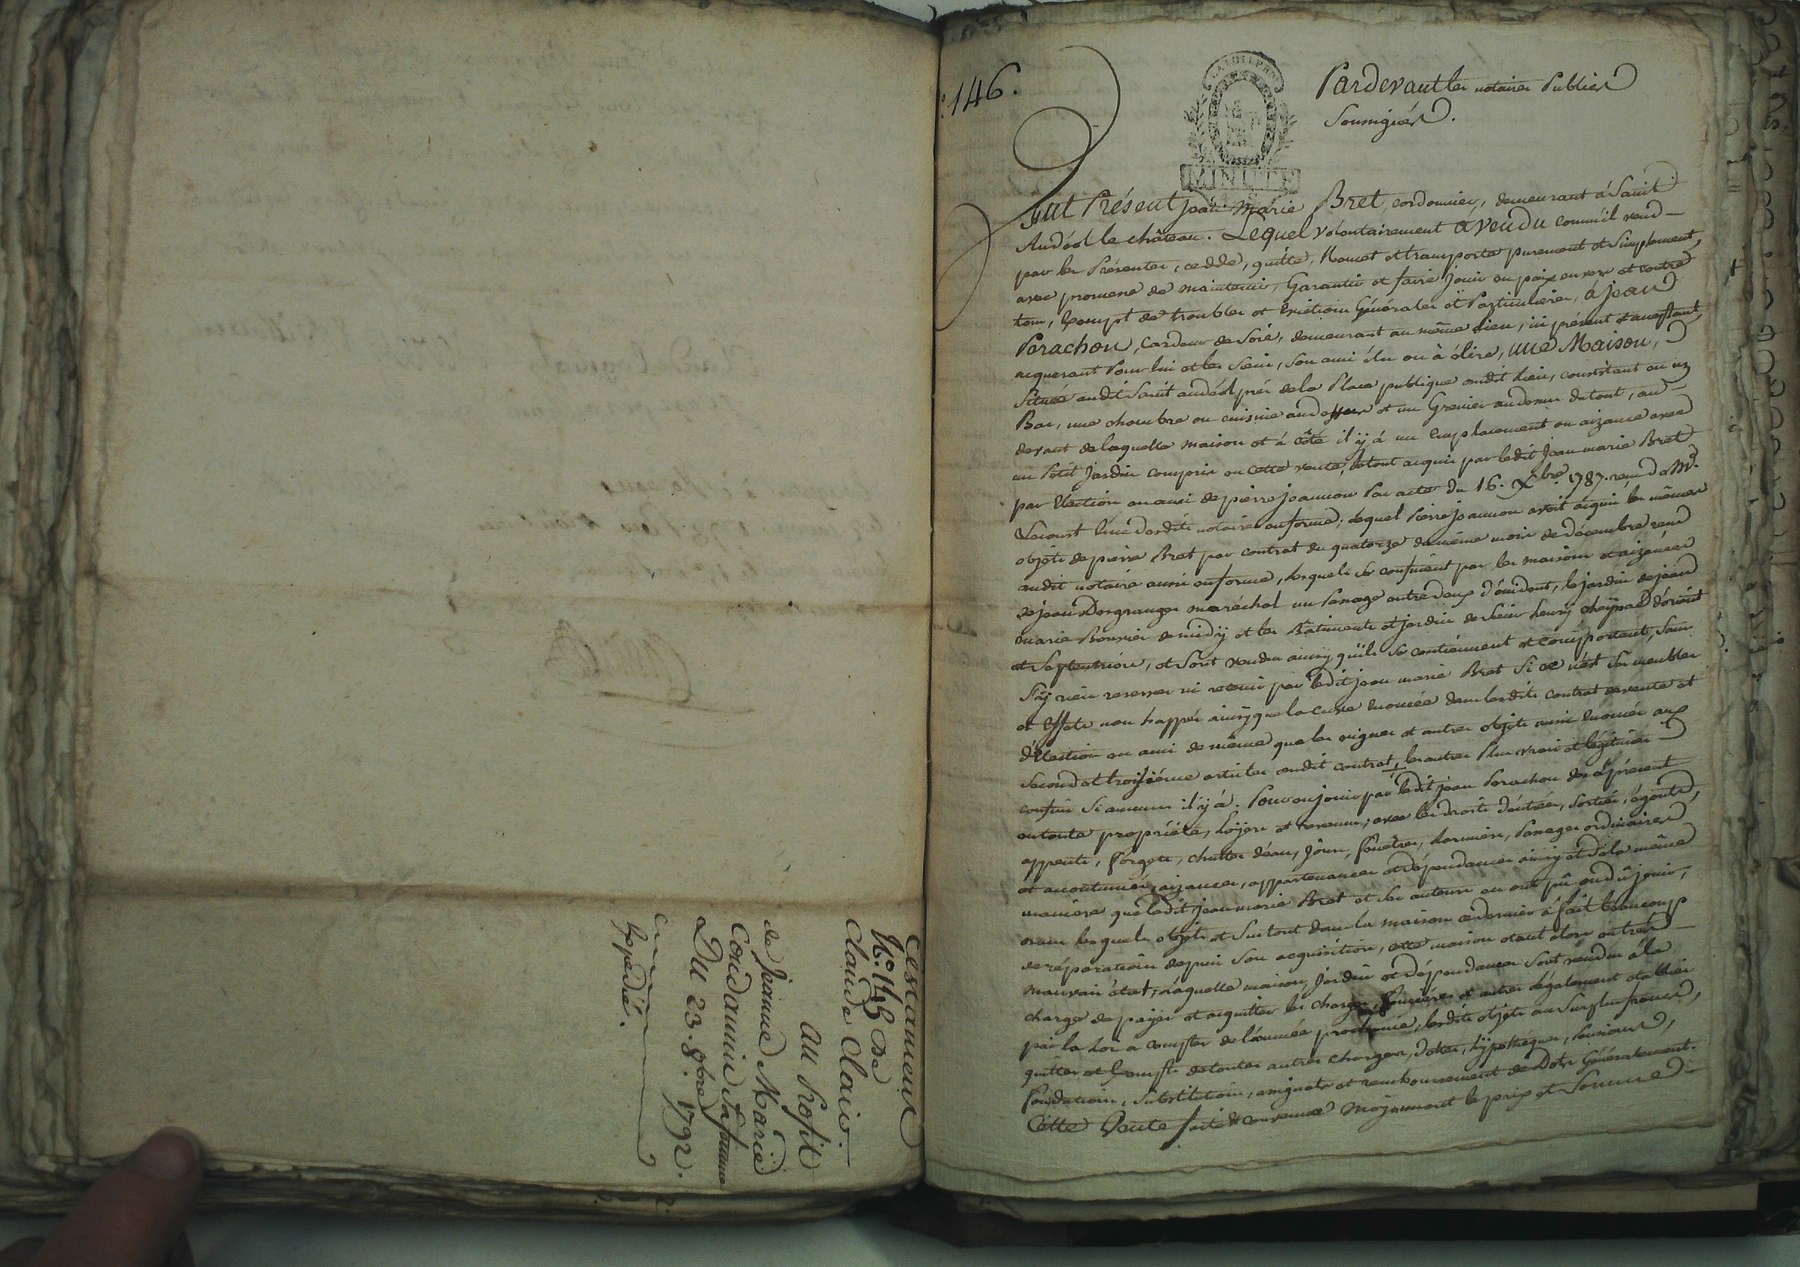 Testament
N.° 145 De
Claude Clair.
Au Profit
de Jeanne Marie
Condamin sa femme
Du 23. 8bre 1792.
Expedié.
146.
Pardevant les notaires Publics
Sousignés.
MINUTE
fut Présent Jean Marie Bret, cordonnier, demeurant à Saint
Andéol le château. Lequel volontairement a vendu comm'il vend
par les Présentes, cedde, quitte, Remet et transporte purement et simplement,
avec promesse de maintenir, Garantir et faire jouir en paix envers et contre
tous, Exempt de troubles et Evictions Générales et Particulieres, à jean
Perachon, Cardeur de Soie, demeurant au même lieu, ici présent et acceptant,
acquerant Pour lui et les Siens, son ami élu ou à élire, une Maison,
Située audit Saint andéol près de la Place publique audit Lieu, consistant en un
Bas, une chambre ou cuisine au dessus et un Grenier au dessus du tout, au
devant de laquelle maison et à côté il y à un Emplacement ou aizance avec
un Petit Jardin compris en cette vente, le tout acquis par ledit Jean marie Bret
par Election en ami de pierre joannon Par acte du 16. Xbre 1787. reçu d. Mr.
l'un desdits notaires en forme; lequel Pierre joannon avoit acquis les mêmes
objets de pierre Bret par contrat du quatorze du même mois de décembre reçu
audit notaire aussi en forme, lesquels se confinent par les maisons et aizances
de jean Desgranges maréchal un Passage entre deux d'occident, le jardin de jean
marie Bouvier de midy et les Batiments et jardin de Sieur henry d'orient
et Septentrion, et Sont vendus ainsy qu'ils se contiennent et comportent, Sans
s'y rien reserver ni retenir par ledit jean marie Bret Si ce n'est ses meubles
et Effets non happés ainsy que la cuve Enoncée dans lesdits contrat de vente et
d'Election en ami de même que les vignes et autres objets aussi Enoncés aux
Second et troisième articles audit contrat, les autres Plus vrais et légitimes
confins Si aucuns il y à. Pour en jouir par ledit jean Perachon dès à présent
en toute propriété, Loyers et revenus; avec les droits d'entrées, sorties, égouts,
appents, forgets, chutte d'eau, jours, fenêtres, Larmiers, Passages ordinaires
et accoutumés, aizances, appartenances et dépendances ainsy et de la même
maniere que ledit jean marie Bret et ses auteurs en ont pû ou dû jouir,
dans lesquels objets et Surtout dans la maison ce dernier à fait beaucoup
de réparations depuis Son acquisition, cette maison étant alors en très
mauvais état; Laquelle maison, Jardin et dépendances Sont vendus à la
charge de payer et acquitter les charges foncières et autres légalement établies
par la Loi à compter de l'année prochaine, lesdits objets au Surplus francs,
quittes et Exempts de toutes autres charges, dettes, hypotheques, Pensions,
fondations, Substitutions, assignats et remboursement de dots Généralement.
Cette Vente faite et convenue Moyennant le prix et Somme